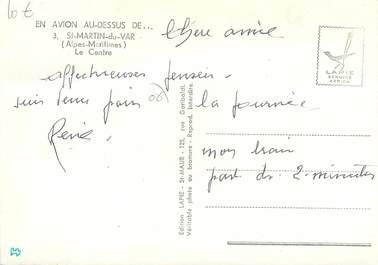 EN AVION AU-DESSUS DE...
3. St-MARTIN-du-VAR
(Alpes-Maritimes)
Le Centre
Chère amie
affectueuses pensées
suis venu
la journée
René.
mon train
part ds. 2 minutes
LAPIE
SERVICE
AERIEN
Edition LAPIE - St-MAUR - 125, rue Garibaldi.
Véritable photo au bromure - Reprod. Interdite.